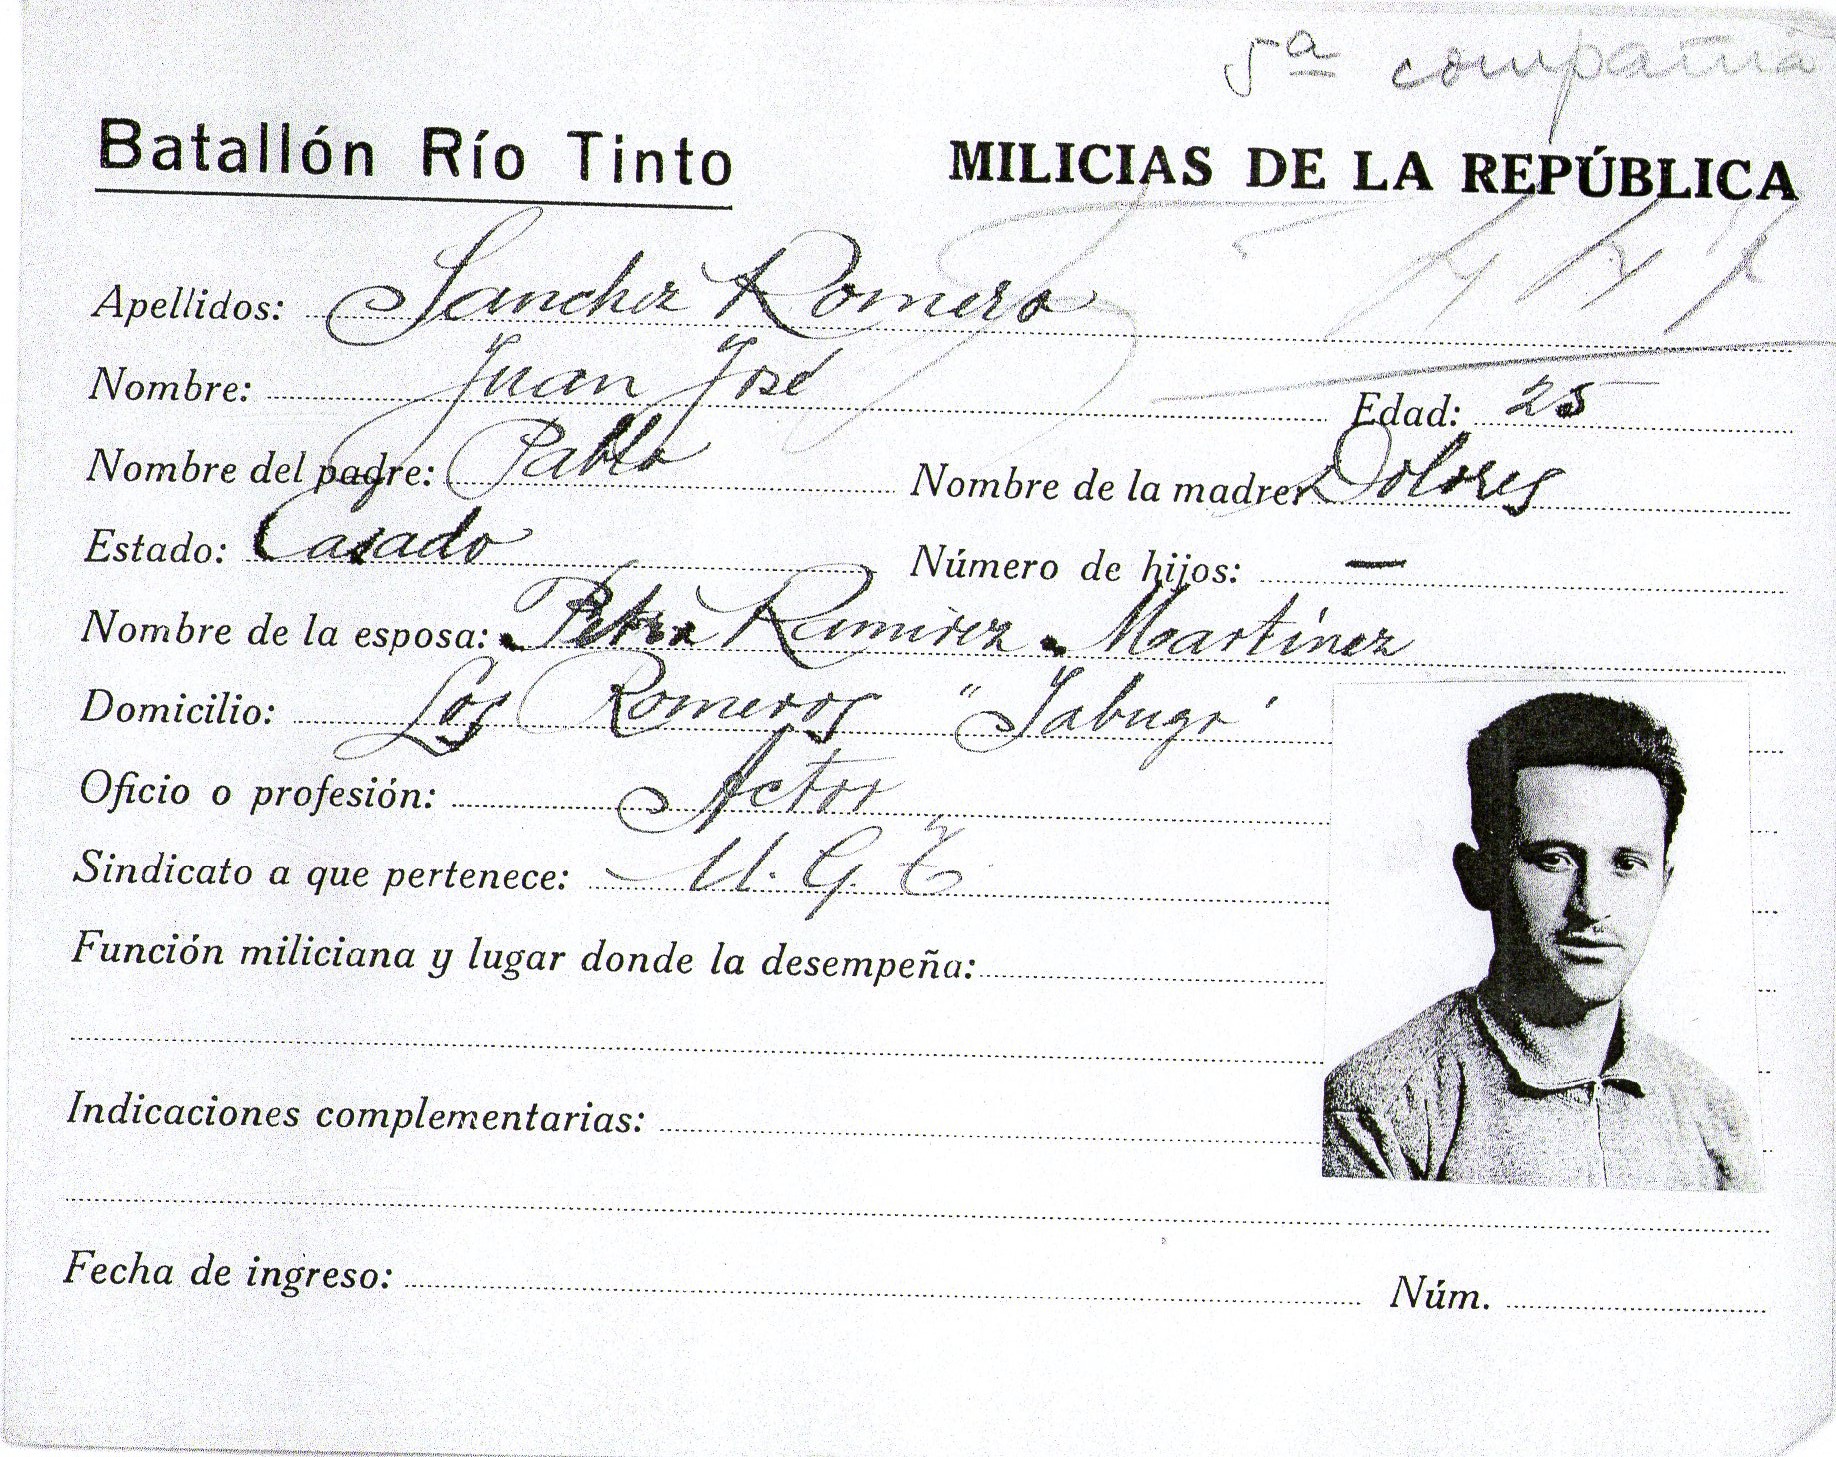 5ª compañia
Batallón Río Tinto MILICIAS DE LA REPÚBLICA
Apellidos: Sanchez Romero
Nombre: Juan José Edad: 25
Nombre del padre: Pablo Nombre de la madre: Dolores
Estado: Casado Número de hijos: —
Nombre de la esposa: Petra Ramirez Martínez
Domicilio: Los Romeros "Jabugo"
Oficio o profesión: Actor
Sindicato a que pertenece: U. G. T.
Función miliciana y lugar donde la desempeña:
Indicaciones complementarias:
Fecha de ingreso: Núm.